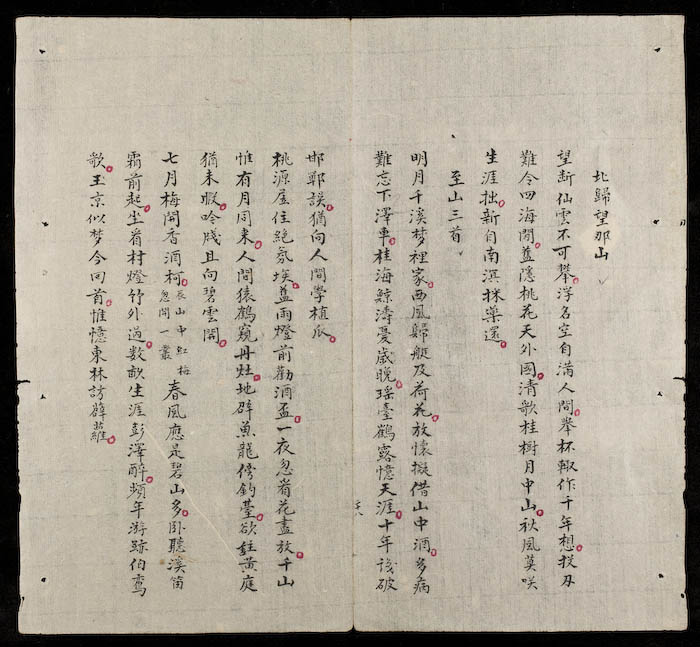 北歸望那山
望斷仙雲不可攀浮名空自滿人間擧杯輙作千年想投刃
難令四海閒藍隱桃花天外國清歌桂樹月中山秋風莫咲
生涯拙新自南溟採藥還
至山三首
明月千溪梦裡家西風歸艇及荷花放懷擬借山中酒多病
難忘下澤車桂海鯨濤憂歲晚瑤臺鶴露憶天涯十年誤破
邯鄲誤猶向人間學植瓜
桃源屋住絶氛埃藍雨燈前勸酒盃一夜忽看花盡放千山
惟有月同来人間猿鶴窺丹灶地辟魚龍傍釣臺欲註黄庭
猶未暇吟牋且向碧雲開
七月梅開香酒柯長山中紅梅忽開一叢春風應是碧山多卧聽溪笛
霜前起坐看村燈竹外過數畝生涯彭澤醉頻年游跡伯鸞
歌玉京似梦今回首惟憶東林訪薜蘿